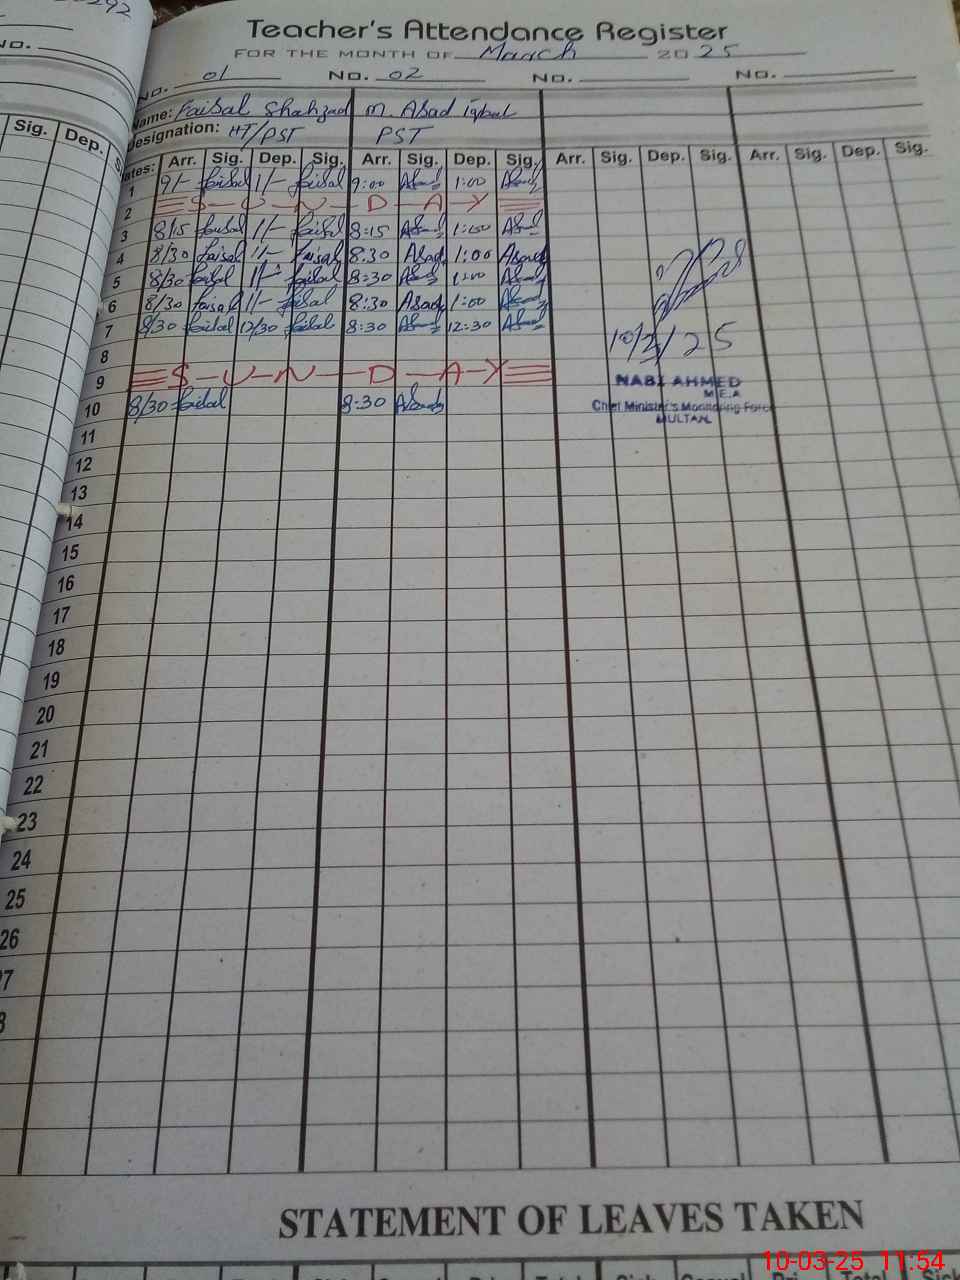 292
No.
Sig. Dep. S
Teacher's Attendance Register
FOR THE MONTH OF March 2025
No. 01 No. 02 No. No.
Name: Faisal Shahzad M. Asad iqbal
Designation: HT/PST PST
ates: Arr. Sig. Dep. Sig. Arr. Sig. Dep. Sig. Arr. Sig. Dep. Sig. Arr. Sig. Dep. Sig.
1 9/- faisal 1/- faisal 9:00 Asad 1:00 Asad
2 S-U-N-D-A-Y
3 8/15 faisal 1/- faisal 8:15 Asad 1:00 Asad
4 8/30 faisal 1/- faisal 8:30 Asad 1:00 Asad
5 8/30 faisal 1/- faisal 8:30 Asad 1:00 Asad
6 8/30 faisal 1/- faisal 8:30 Asad 1:00 Asad
7 8/30 faisal 12/30 faisal 8:30 Asad 12:30 Asad
10/3/25
8
9 S-U-N-D-A-Y
NABI AHMED
M.E.A
10 8/30 faisal 8:30 Asad
Chief Minister's Monitoring Force
MULTAN.
11
12
13
14
15
16
17
18
19
20
21
22
23
24
25
26
27
8
STATEMENT OF LEAVES TAKEN
10-03-25 11:54